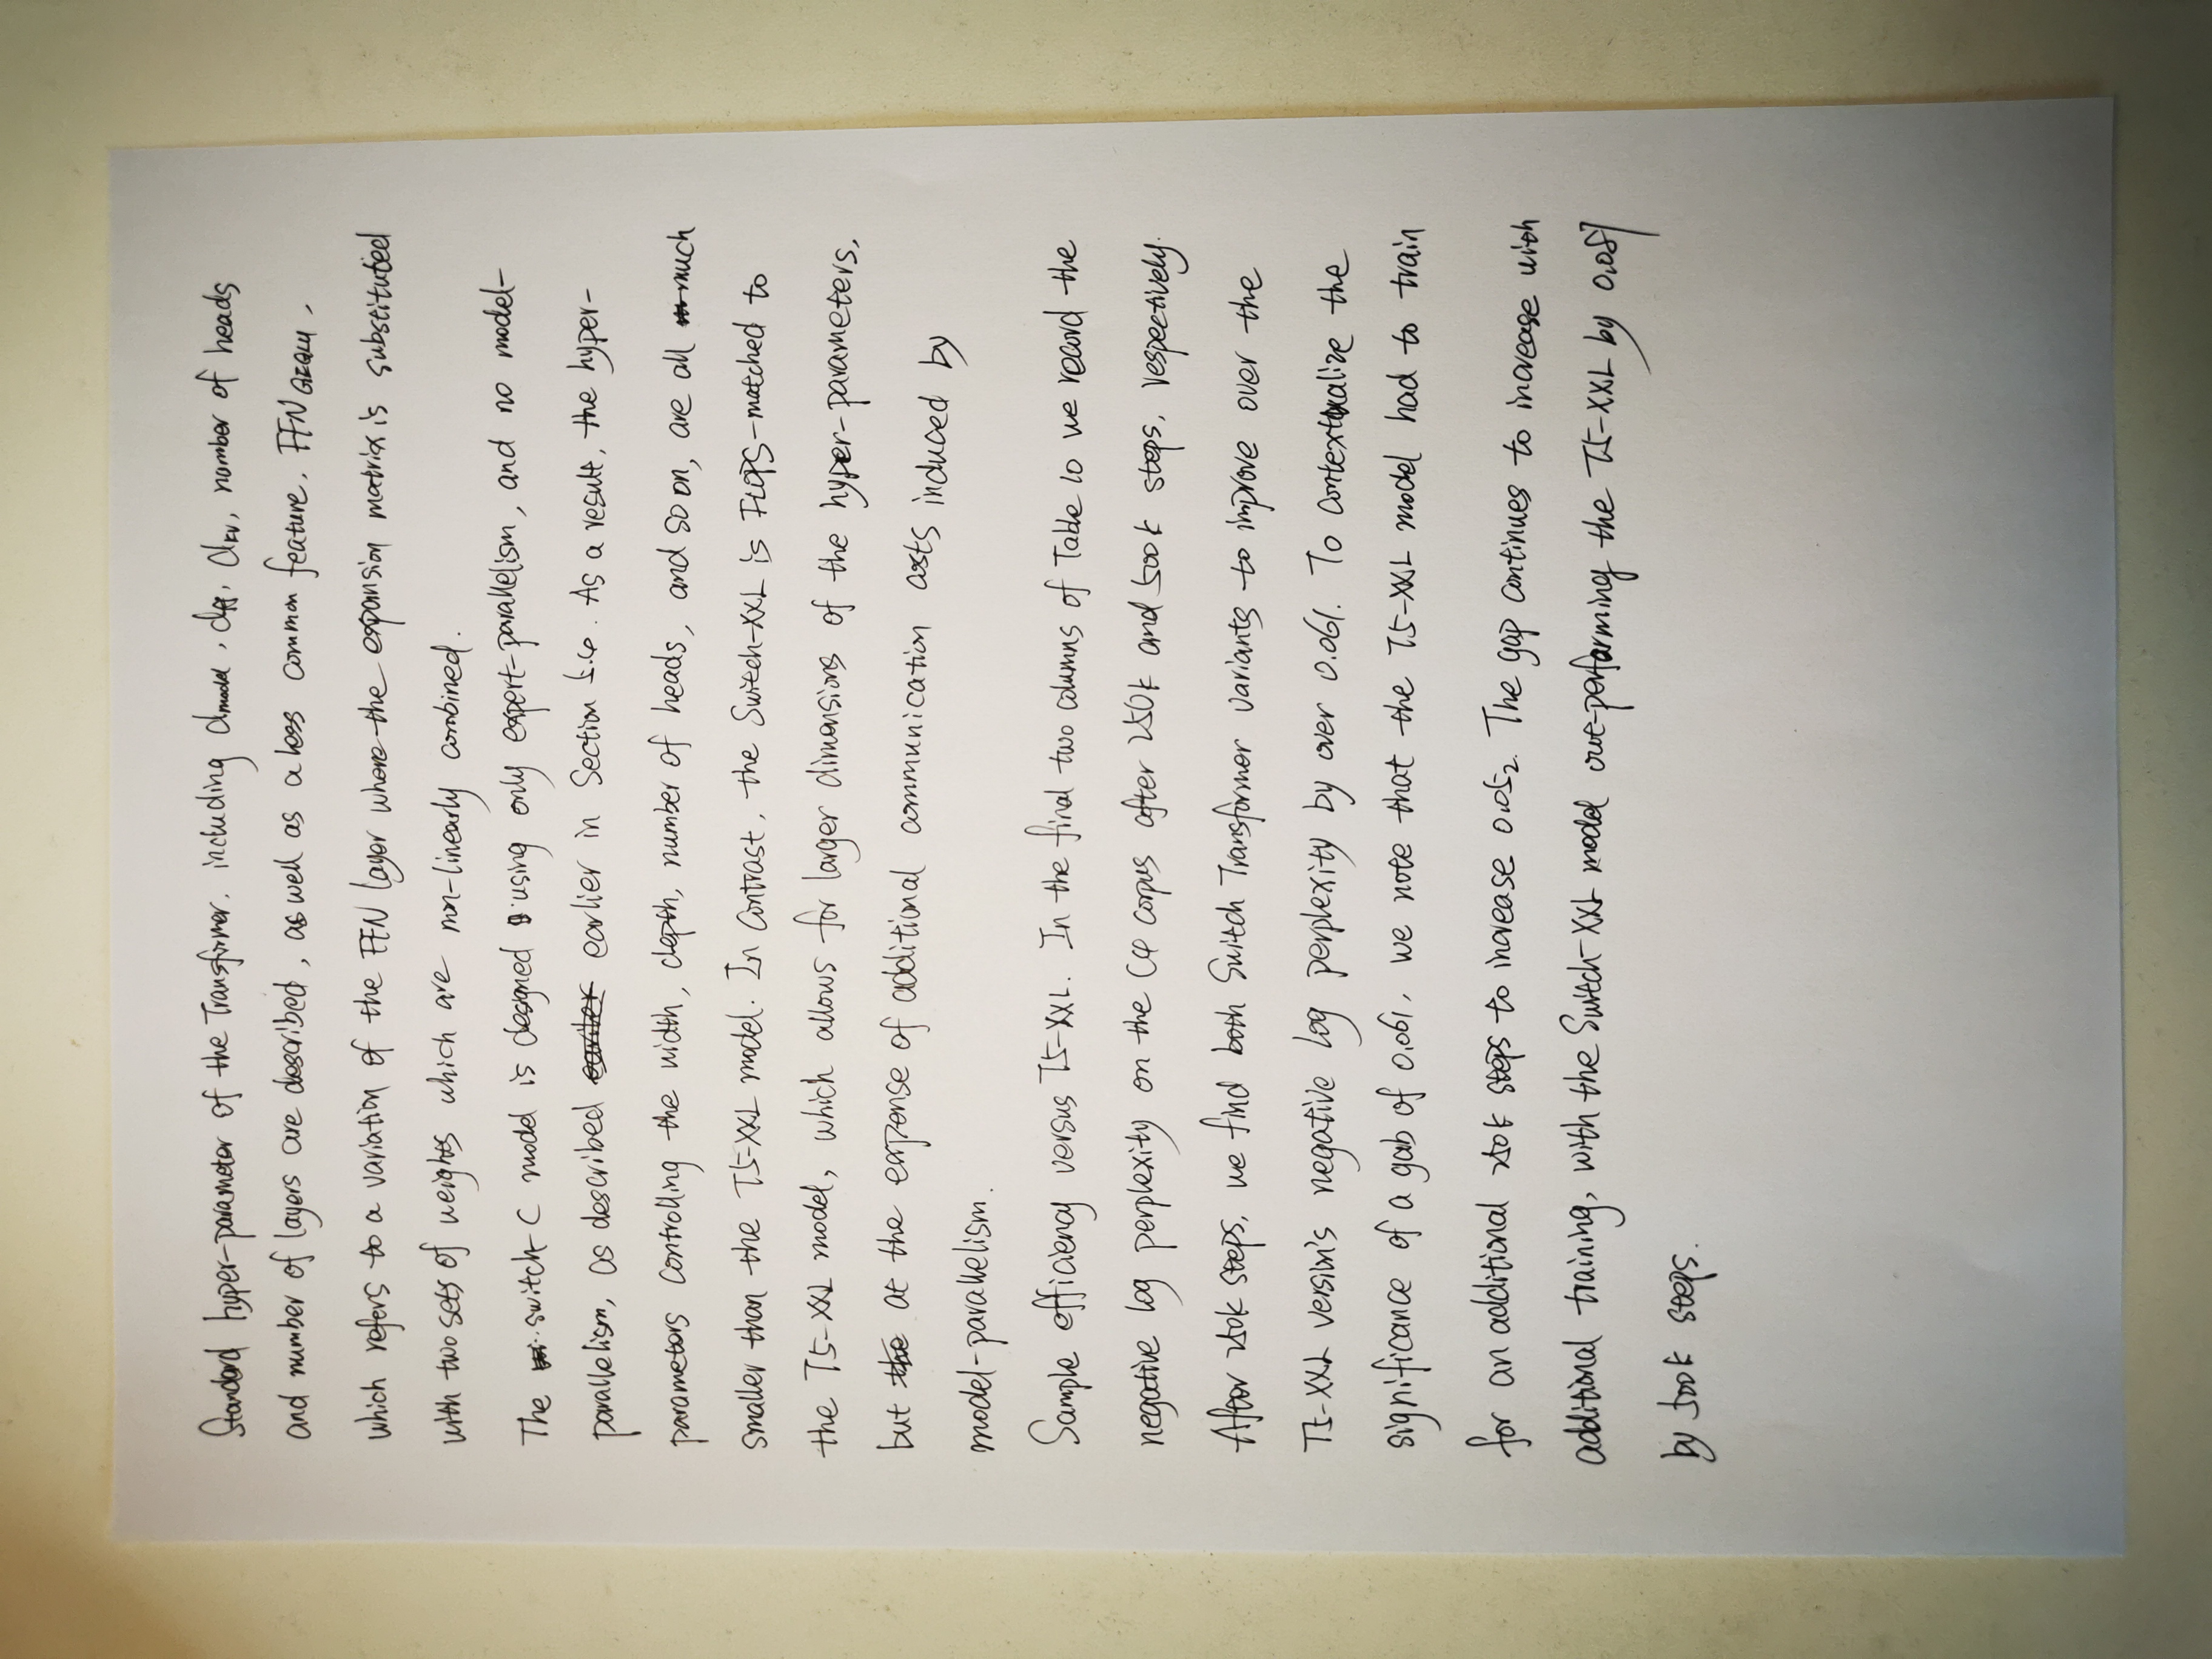 Standard hyper-parameter of the Transformer, including dmodel, dff, dkv, number of heads
and number of layers are described, as well as a less common feature, FFN GEGLU,
which refers to a variation of the FFN layer where the expansion matrix is substituted
with two sets of weights which are non-linearly combined.
The switch-C model is designed using only expert-parallelism, and no model-
parallelism, as described earlier in Section 5.4. As a result, the hyper-
parameters controlling the width, depth, number of heads, and so on, are all much
smaller than the T5-XXL model. In Contrast, the Switch-XXL is FLOPS-matched to
the T5-XXL model, which allows for larger dimensions of the hyper-parameters,
but at the expense of additional communication costs induced by
model-parallelism.
Sample efficiency versus T5-XXL. In the final two columns of Table 10 we record the
negative log perplexity on the C4 corpus after 250k and 500k steps, respectively.
After 250k steps, we find both Switch Transformer variants to improve over the
T5-XXL version's negative log perplexity by over 0.061. To contextualize the
significance of a gab of 0.061, we note that the T5-XXL model had to train
for an additional 250k steps to increase 0.052. The gap continues to increase with
additional training, with the Switch-XXL model out-performing the T5-XXL by 0.087
by 500k steps.